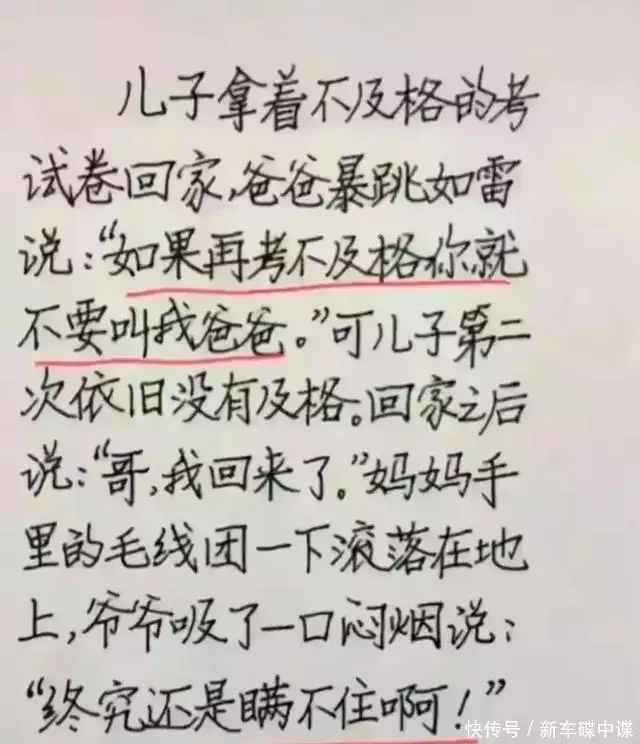 儿子拿着不及格的考
试卷回家,爸爸暴跳如雷
说:“如果再考不及格你就
不要叫我爸爸。”可儿子第二
次依旧没有及格。回家之后
说:“哥,我回来了。”妈妈手
里的毛线团一下滚落在地
上,爷爷吸了一口闷烟说:
“终究还是瞒不住啊!”
快传号/新车碟中谍